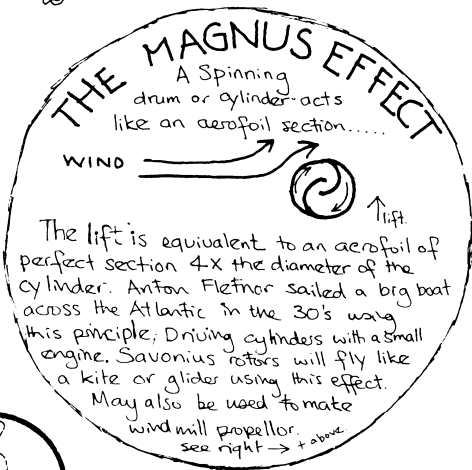 THE MAGNUS EFFECT
A Spinning
drum or cylinder acts
like an aerofoil section.....
WIND
↑lift.
The lift is equivalent to an aerofoil of
perfect section 4X the diameter of the
cylinder. Anton Fletnor sailed a big boat
across the Atlantic in the 30's using
this principle; Driving cylinders with a small
engine. Savonius rotors will fly like
a kite or glider using this effect.
May also be used to mate
windmill propellor.
see right → + above.